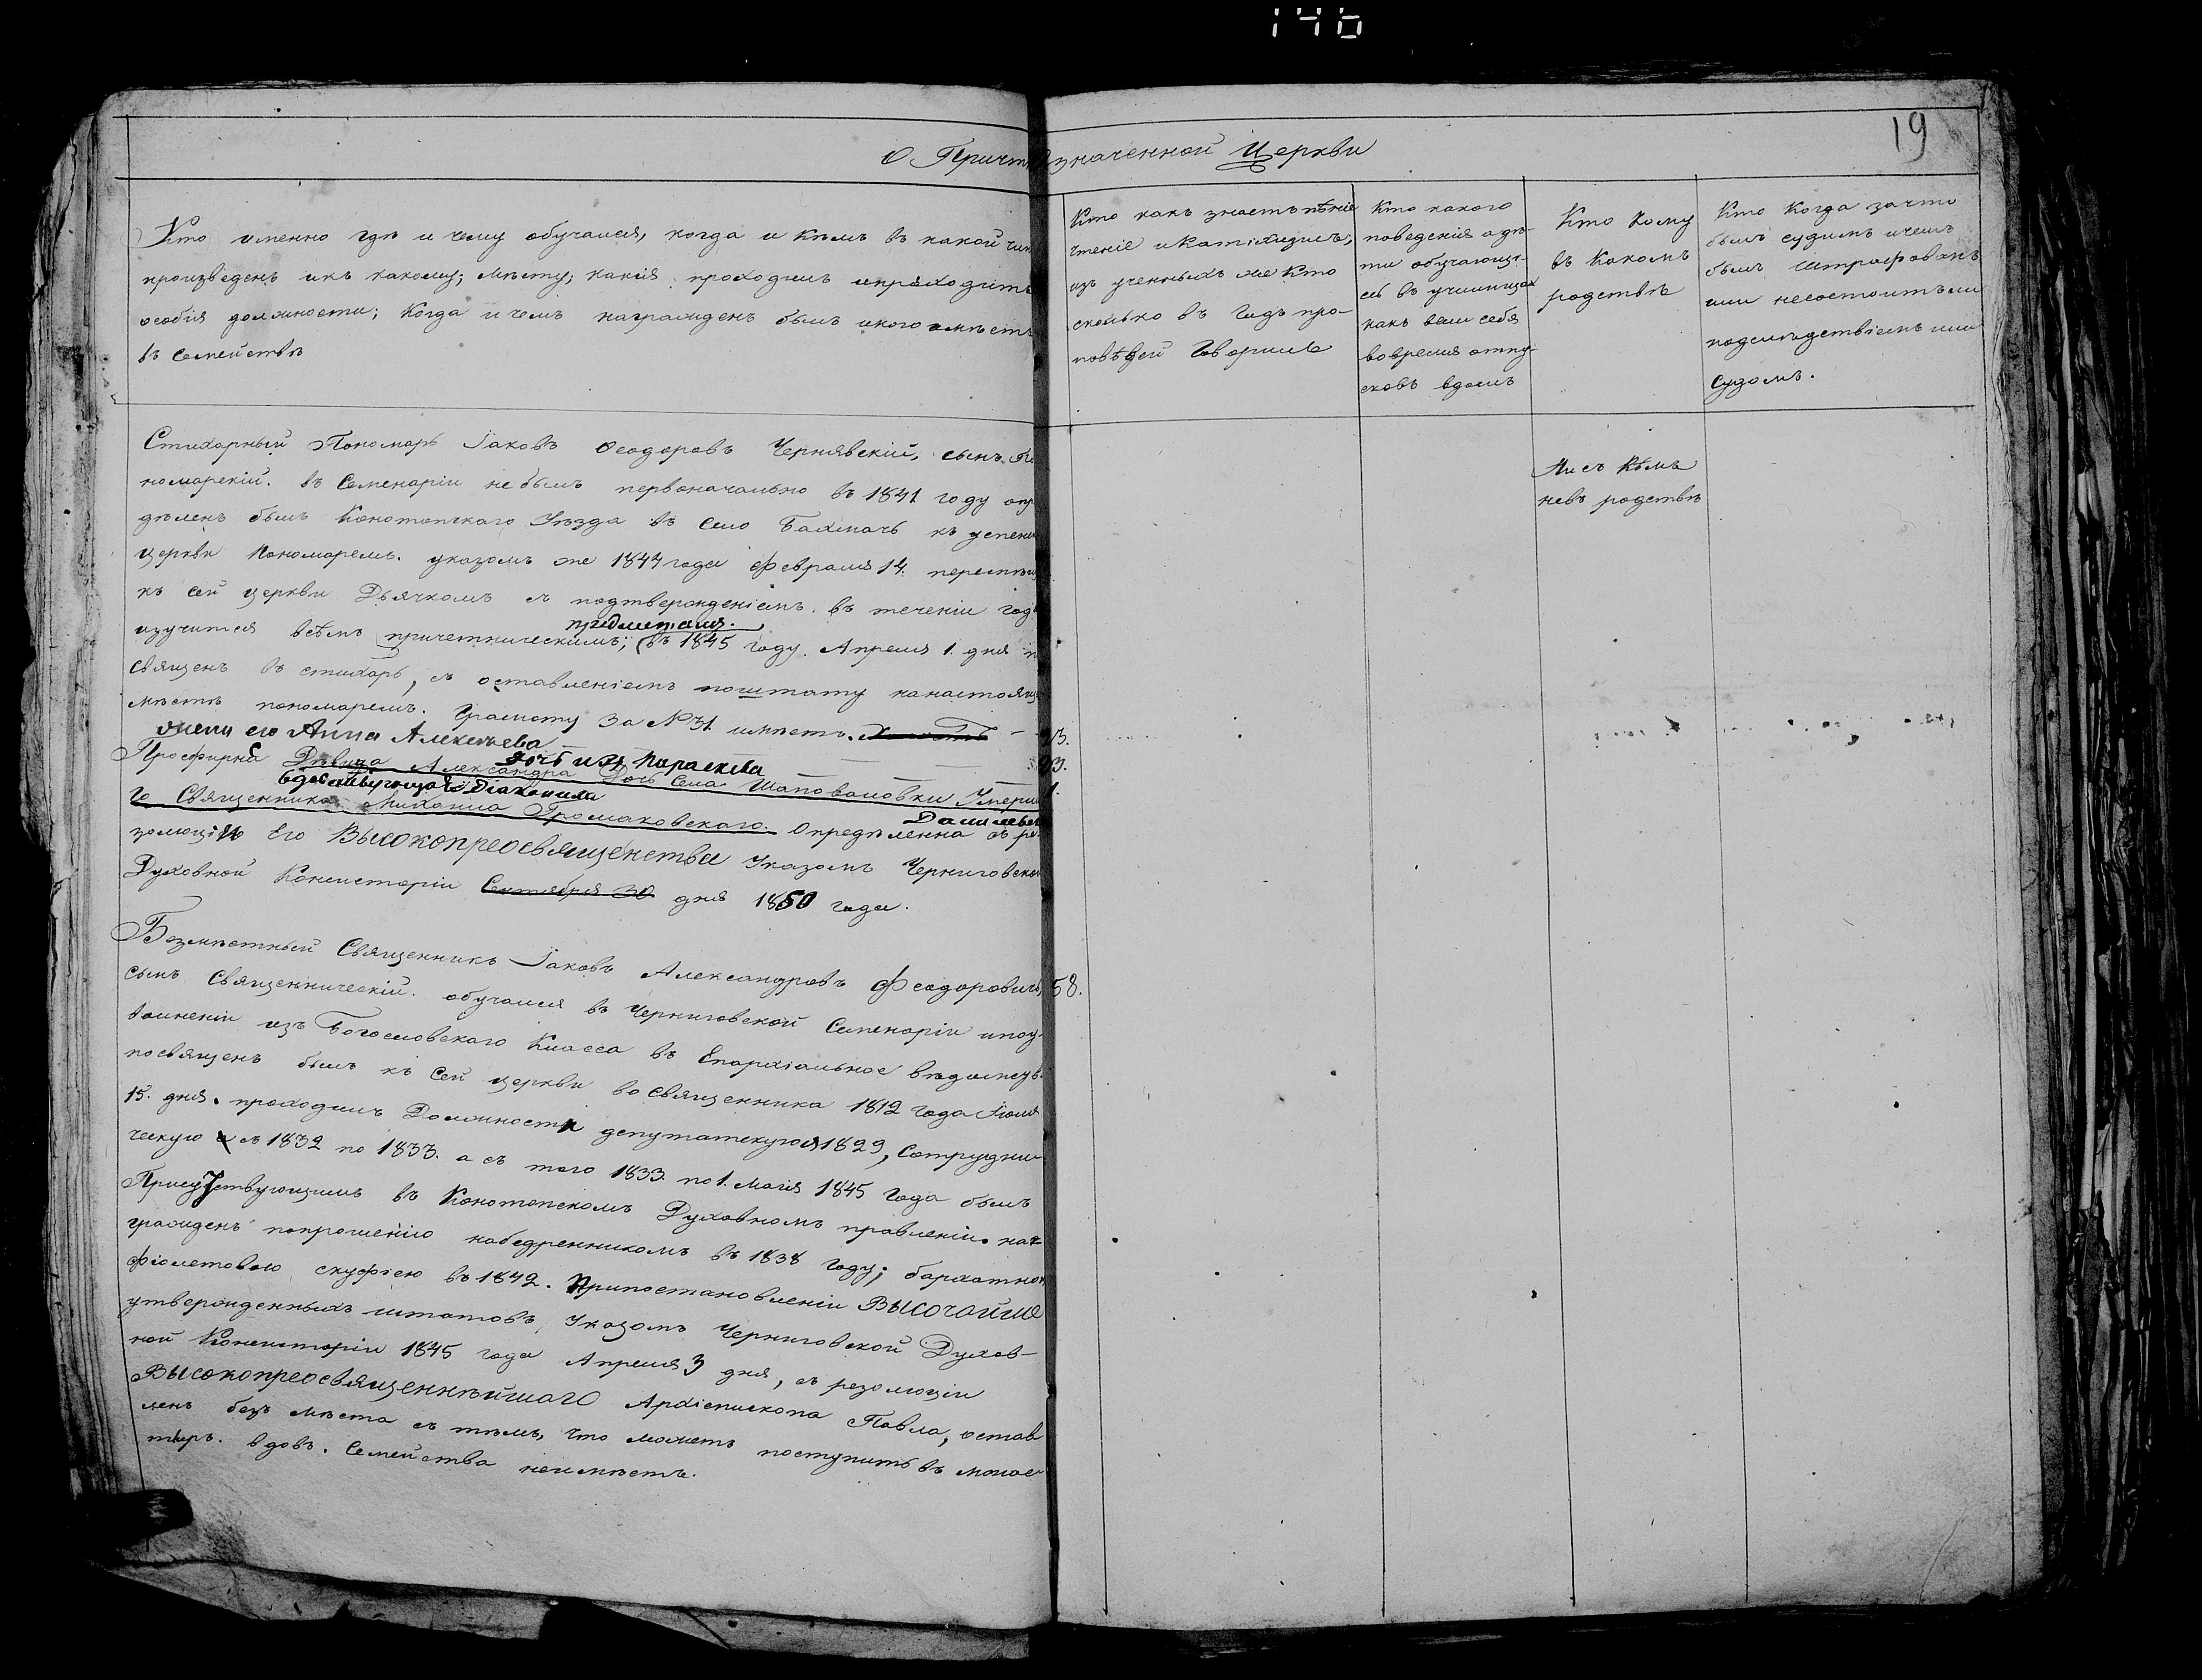 146
19
О Причтѣ означенной Церкви
Кто именно гдѣ и чему обучался, когда и кѣмъ въ какой чинъ
произведенъ икъ какому; мѣсту; какія проходилъ ипроходитъ
особія должности; Когда и чемъ награжденъ былъ икого имѣетъ
въ семействѣ
Кто какъ знаетъ пѣніе
чтеніе и Катихизисъ,
изъ ученыхъ же кто
сколько въ Годъ про-
повѣдей Говорилъ
Кто какого
поведенія а дѣ-
ти обучающі-
еся въ училищах
какъ вели себя
вовремя отпу-
сковъ вдомъ
Кто Кому
въ Какомъ
родствѣ
Кто Когда зачто
былъ судимъ ичемъ
былъ Штрафованъ
или несостоитъ ли
подслѣдствіемъ или
судомъ.
Стихарный Пономарь Іаковъ Феодоровъ Чернявскій, сынъ По
номарскій. въ Семенаріи не былъ первоначально въ 1841 году опр
дѣленъ былъ Конотопскаго Уѣзда въ Село Бахмачъ къ успенс
церкви Пономаремъ. указомъ же 1844 года Февраля 14. перемѣщ
къ сей церкви Дьячкомъ съ подтвержденіемъ. въ теченіи год
предметамъ.
изучится всѣмъ причетническимъ; въ 1845 году. Апреля 1. дня п
священъ въ стихарь, съ оставленіемъ поштату нанастоящ
мѣстѣ пономаремъ. Грамоту за № 31. имѣетъ. Холостъ 23.
жена его Анна Алексѣева 23.
дочь ихъ Параскева 1.
Просфирня Дѣвица Александра Дочь Села Шаповаловки Умерш
вдовствующая Діаконица
го Священника Михаила Громаковскаго. Опредѣленна съ ре-
золюціи Его Высокопреосвященства Указомъ Черниговской
Духовной Консисторіи Сентября 30 дня 1850 года.
Безмѣстный Священникъ Іаковъ Александровъ Феодоровичъ 58.
сынъ Священническій. обучался въ Черниговской Семенаріи ипоу-
вольненіи изъ Богословскаго Класса въ Епархіальное вѣдомств.
посвященъ былъ къ сей церкви во священника 1812 года Іюля
15. дня. проходилъ Должности депутатскую 1829, Сотрудни-
ческую съ 1832 по 1833. а съ того 1833. по 1. Маія 1845 года былъ
Присутствующимъ въ Конотопскомъ Духовномъ правленіи. наг
гражденъ попрошенію набедренникомъ въ 1838 году; бархатною
фіолетовою скуфіею въ 1842. Припостановленіи Высочайше
утвержденныхъ штатовъ, Указомъ Черниговской Духов-
ной Консисторіи 1845 года Апреля 3 дня, съ резолюціи
Высокопреосвященнѣйшаго Архіепископа Павла, остав
ленъ безъ мѣста съ тѣмъ, что можетъ поступить въ монас-
тырь. вдовъ. Семейства неимѣетъ.
Ни съ Кѣмъ
невъ родствѣ